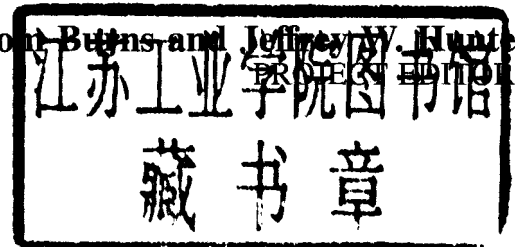 om Burns and Jeffrey W. Hunte
PROJECT EDITOR
江苏工业学院图书馆
藏书章